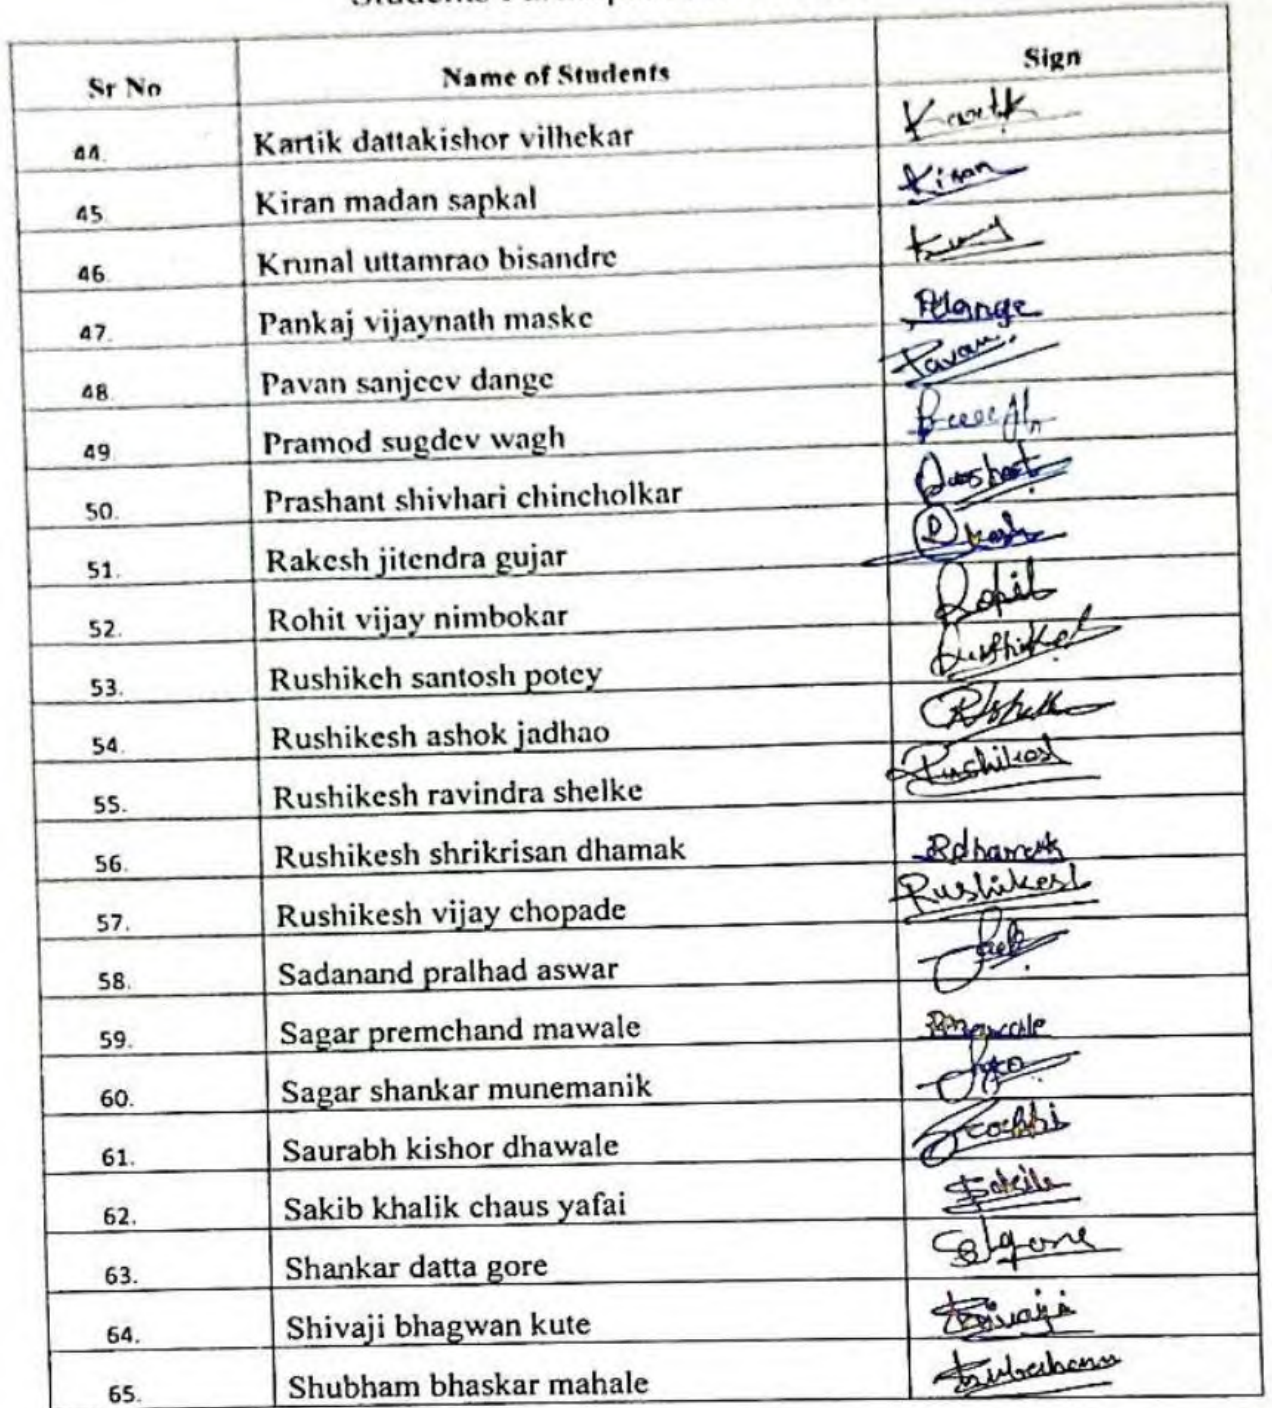 Sr No Name of Students Sign
44. Kartik dattakishor vilhekar Kartik
45. Kiran madan sapkal Kiran
46. Krunal uttamrao bisandre
47. Pankaj vijaynath maske
48. Pavan sanjeev dange Pavan
49. Pramod sugdev wagh
50. Prashant shivhari chincholkar
51. Rakesh jitendra gujar
52. Rohit vijay nimbokar Rohit
53. Rushikeh santosh potey
54. Rushikesh ashok jadhao
55. Rushikesh ravindra shelke Rushikesh
56. Rushikesh shrikrisan dhamak
57. Rushikesh vijay chopade Rushikesh
58. Sadanand pralhad aswar
59. Sagar premchand mawale
60. Sagar shankar munemanik
61. Saurabh kishor dhawale
62. Sakib khalik chaus yafai
63. Shankar datta gore
64. Shivaji bhagwan kute Shivaji
65. Shubham bhaskar mahale